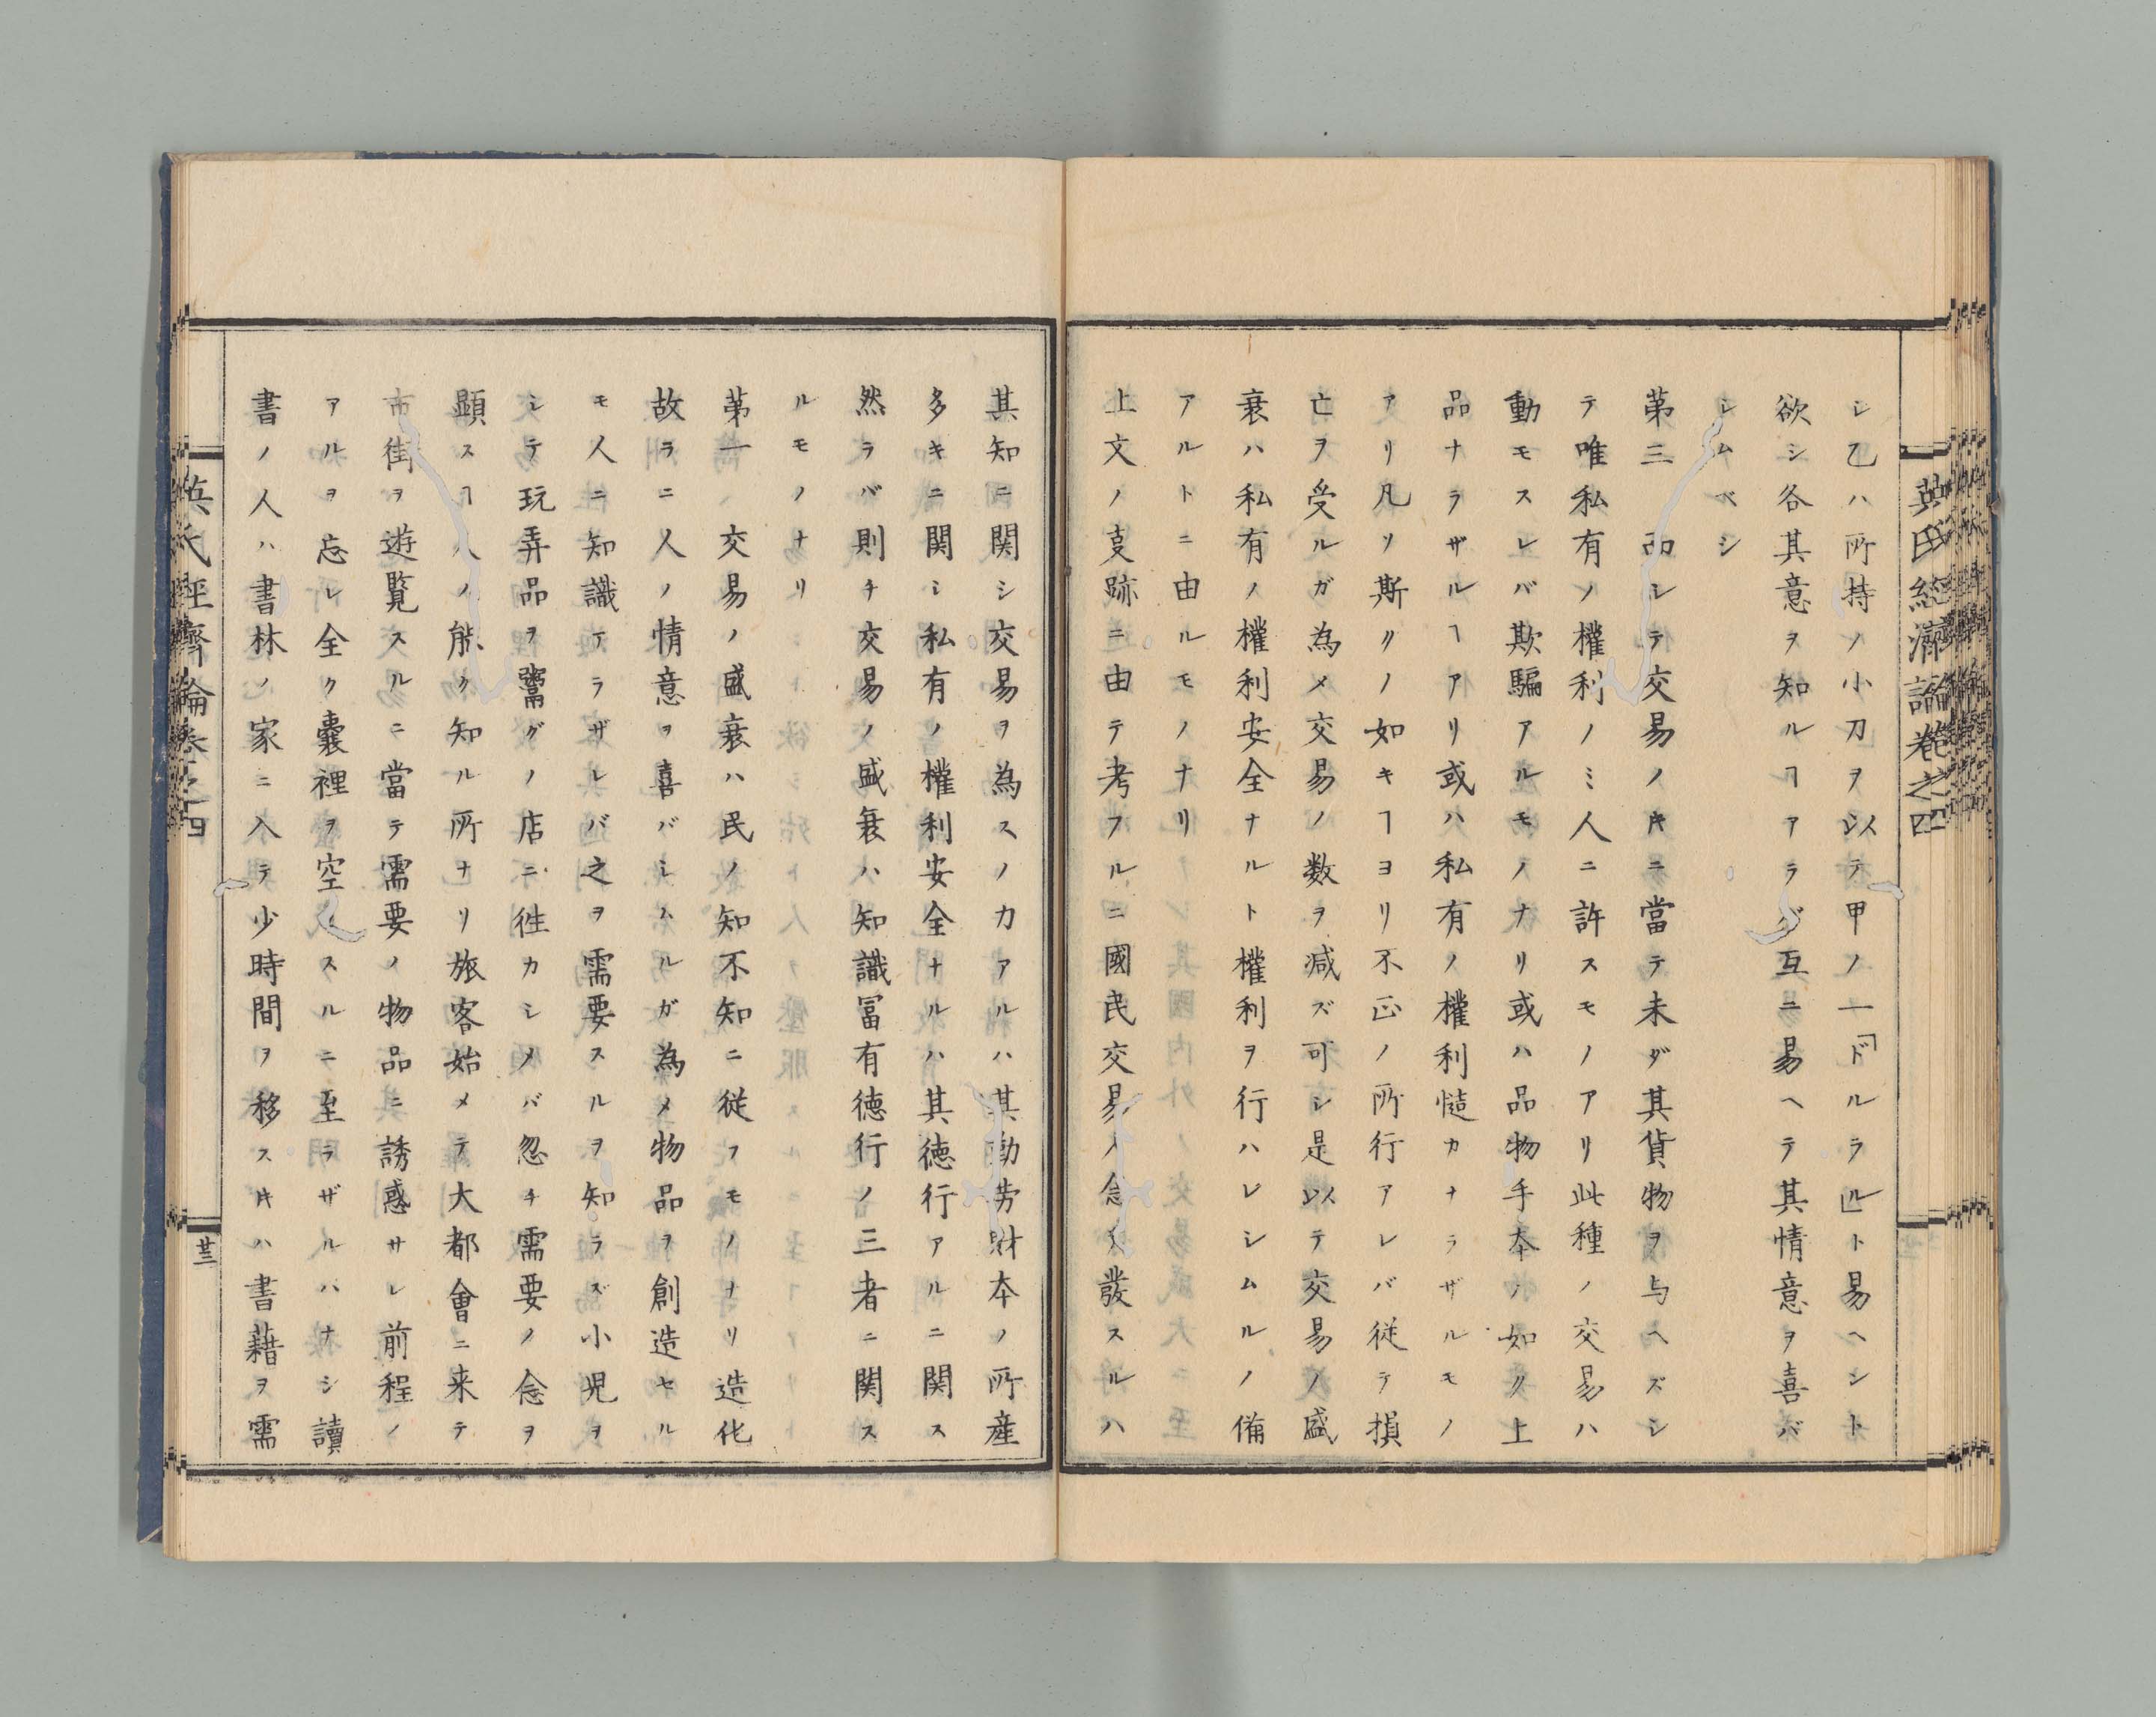 英氏経済論巻之四
シ乙ハ所持ノ小刀ヲ以テ甲ノ一「ドルラル」ト易ヘント
欲シ各其意ヲ知ルヿアラバ互ニ易ヘテ其情意ヲ喜バ
シムベシ
第三 而シテ交易ノキニ當テ未ダ其貨物ヲ与ヘズシ
テ唯私有ノ權利ノミ人ニ許スモノアリ此種ノ交易ハ
動モスレバ欺騙アルモノナリ或ハ品物手本ノ如ク上
品ナラザルヿアリ或ハ私有ノ權利慥カナラザルモノ
アリ凡ソ斯クノ如キヿヨリ不正ノ所行アレバ從テ損
亡ヲ受ルガ為メ交易ノ数ヲ減ズ可シ是以テ交易ノ盛
衰ハ私有ノ權利安全ナルト權利ヲ行ハレシムルノ備
アルトニ由ルモノナリ
上文ノ支跡ニ由テ考フルニ國民交易ノ念ヲ發スルハ
其知ニ関シ交易ヲ為スノカアルハ其勤労財本ノ所産
多キニ関シ私有ノ權利安全ナルハ其徳行アルニ関ス
然ラバ則チ交易ノ盛衰ハ知識冨有徳行ノ三者ニ関ス
ルモノナリ
第一 交易ノ盛衰ハ民ノ知不知ニ従フモノナリ造化
故ラニ人ノ情意ヲ喜バシムルガ為メ物品ヲ創造セル
モ人ニ知識アラザレバ之ヲ需要スルヲ知ラズ小児ヲ
シテ玩弄品ヲ鬻グノ店ニ徃カシメバ忽チ需要ノ念ヲ
顕スヿ人ノ能ク知ル所ナリ旅客始メテ大都會ニ来テ
市街ヲ遊覧スルニ當テ需要ノ物品ニ誘惑サレ前程ノ
アルヲ忘レ全ク嚢裡ヲ空シクスルニ至ラザルハナシ讀
書ノ人ハ書林ノ家ニ入テ少時間ヲ移スキハ書藉ヲ需
英氏経濟論巻之四
廿三